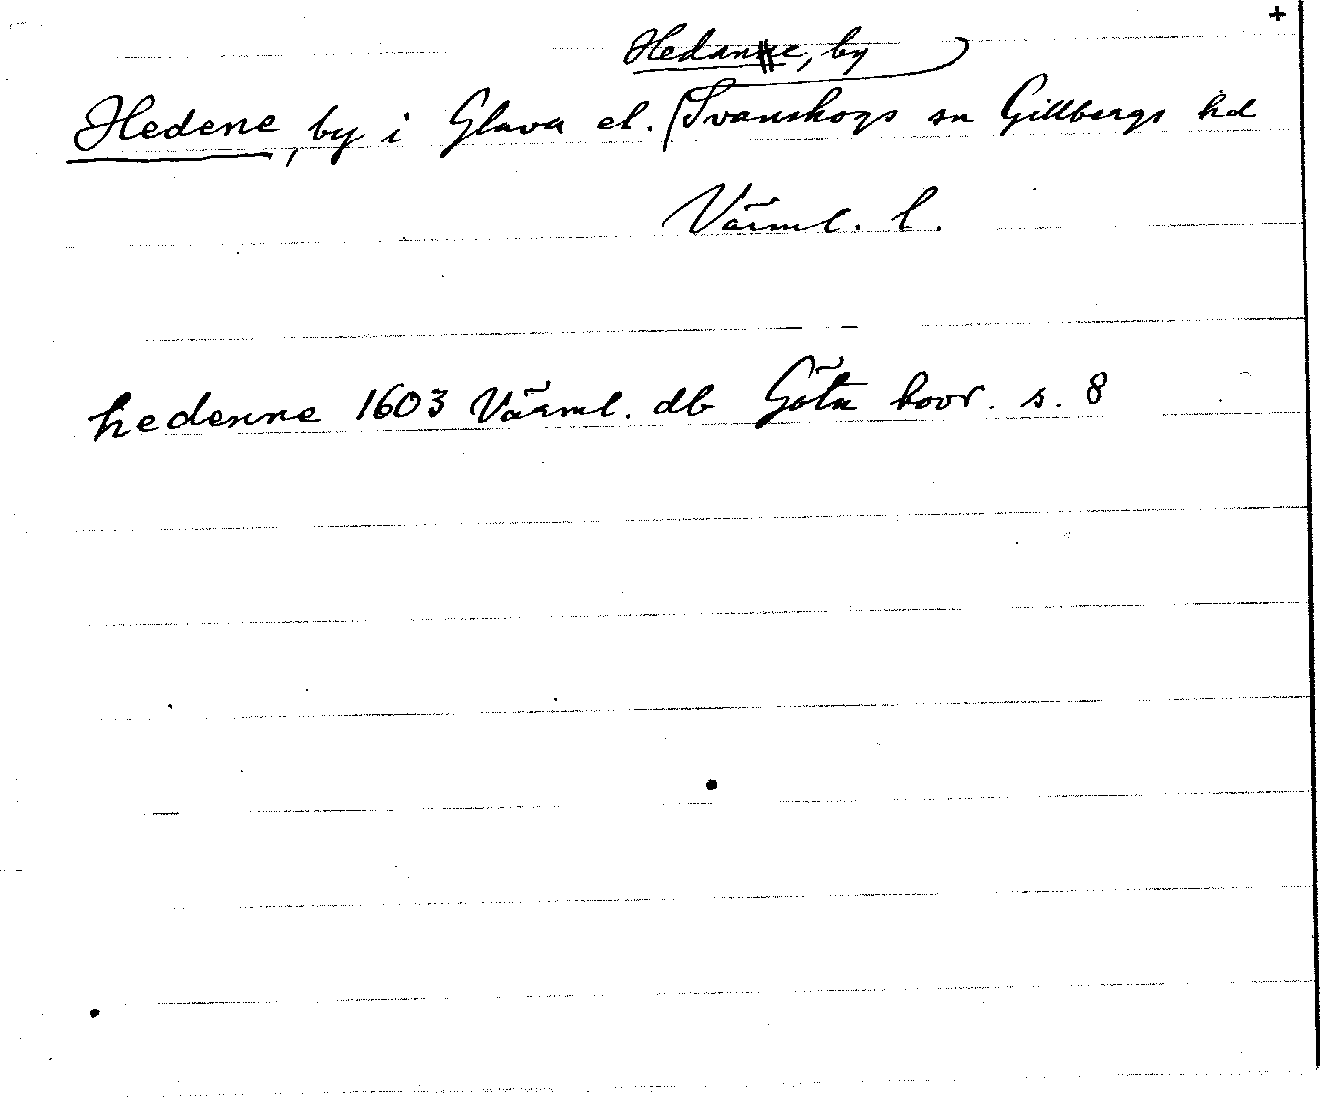 +
Hedane, by
Hedene, by i Glava el. (Svanskogs sn Gillbergs hd
Värml. l.
hedenne 1603 Värml. db Göta hovr. s. 8